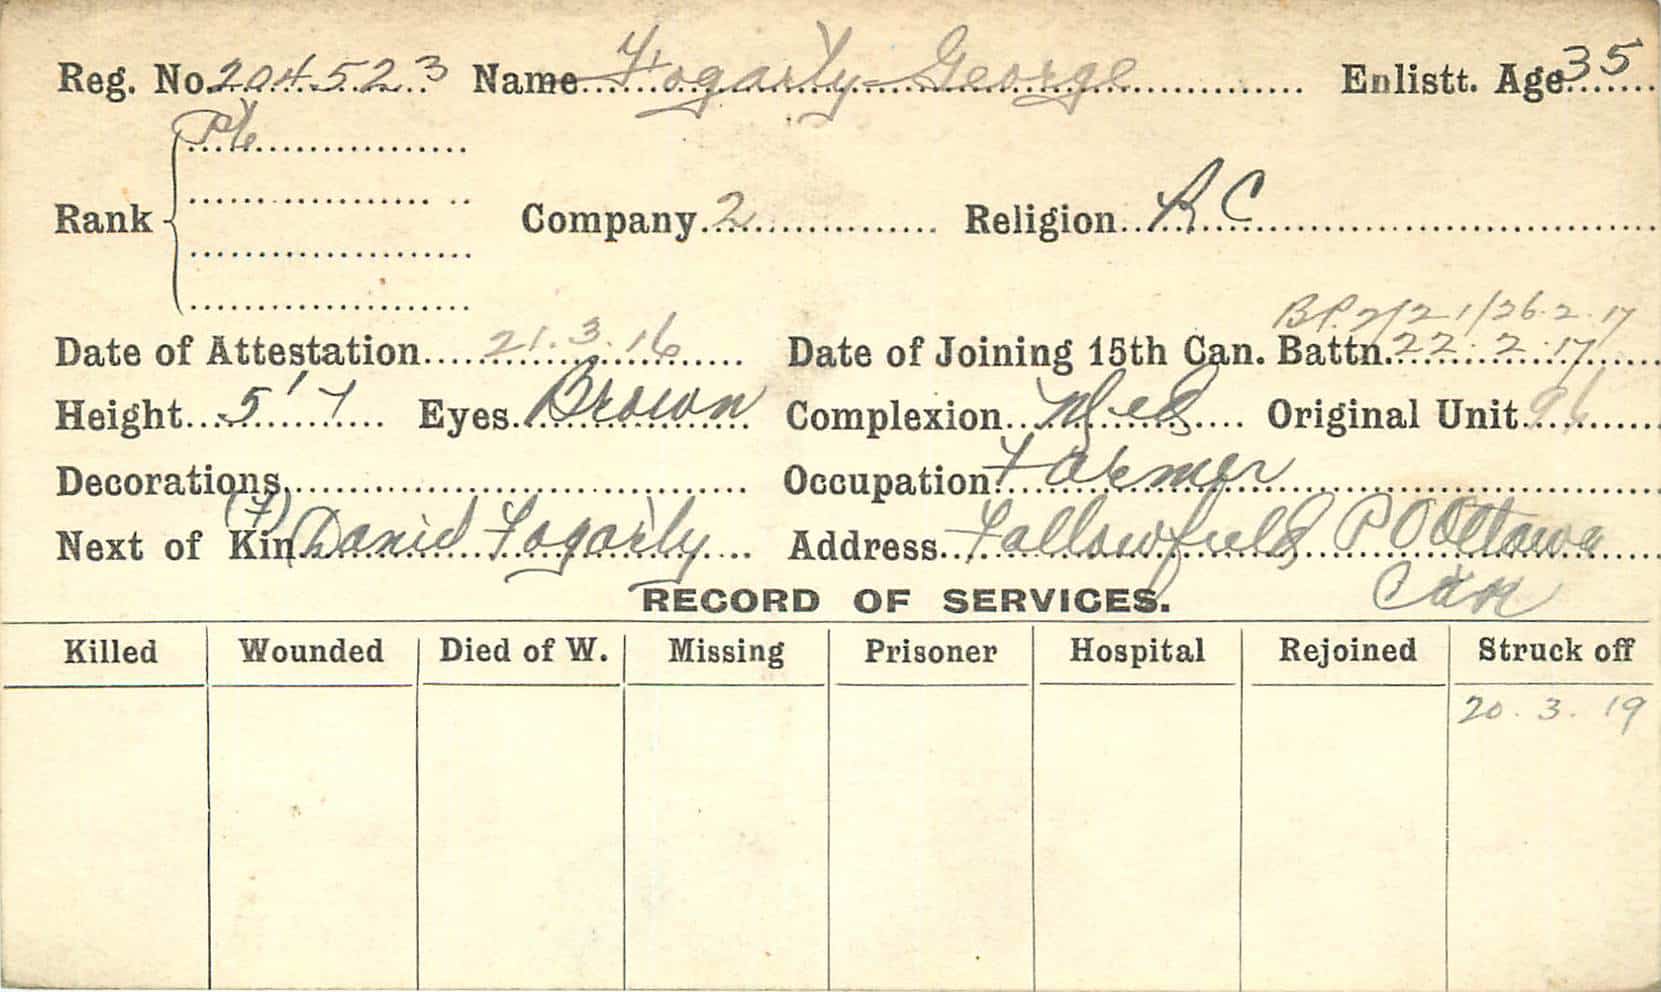 Reg. No. 204523 Name Fogarty George Enlistt. Age 35
Pte
Rank Company 2 Religion R C
B.P. 2/21/26.2.17
Date of Attestation 21.3.16 Date of Joining 15th Can. Battn. 22.2.17
Height 5' 7 Eyes Brown Complexion Med Original Unit 96
Decorations Occupation Farmer
Next of Kin (F) Daniel Fogarty Address Fallowfield P O Ottawa
Can
RECORD OF SERVICES.
Killed Wounded Died of W. Missing Prisoner Hospital Rejoined Struck off
20.3.19